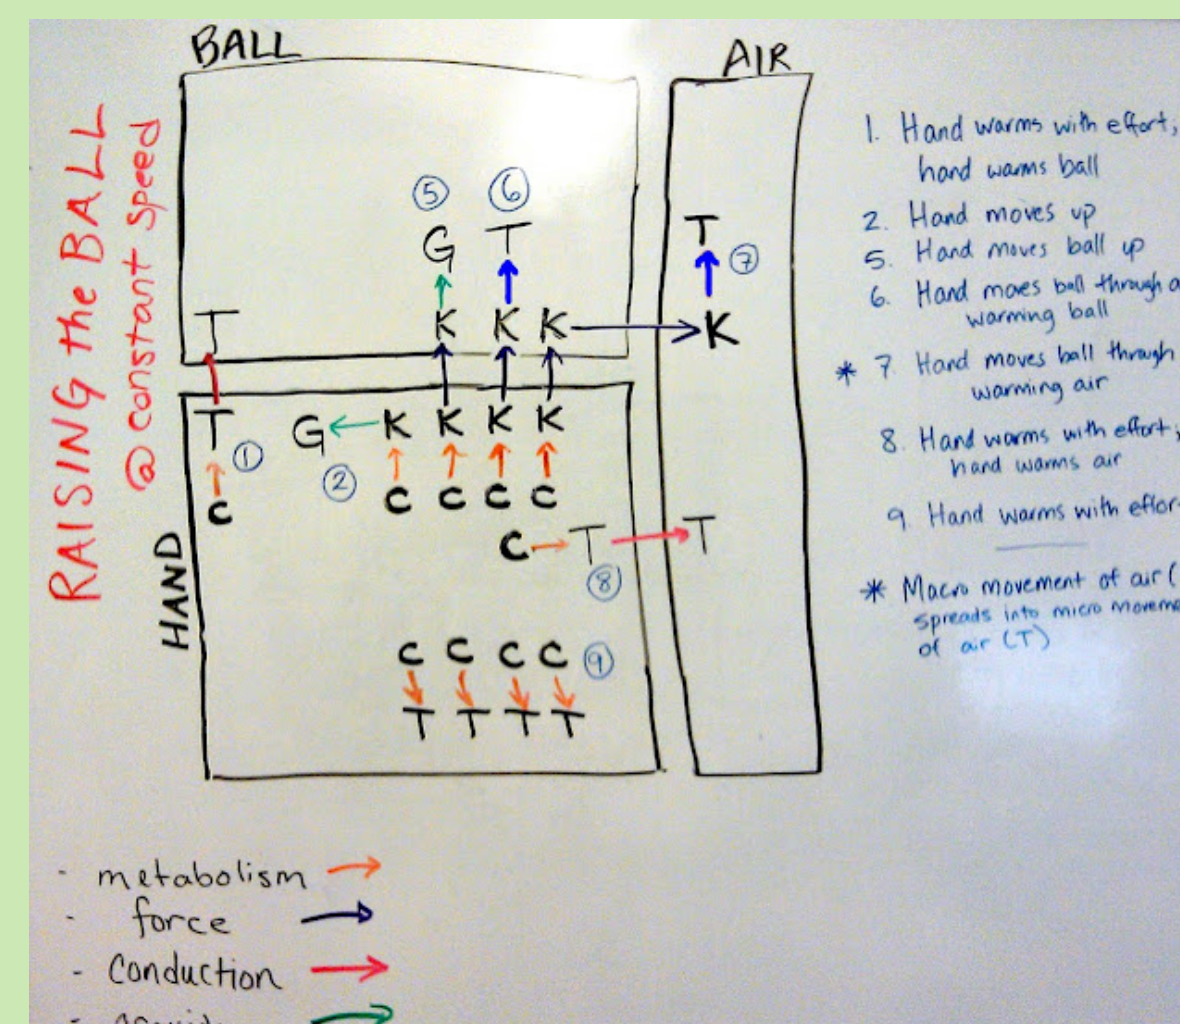 RAISING the BALL
@ constant speed
BALL
AIR
5 6
G T
T 7
T K K K K
HAND
T G K K K K
1
2
C C C C C
C T T
8
C C C C 9
T T T T
1. Hand warms with effort;
hand warms ball
2. Hand moves up
5. Hand moves ball up
6. Hand moves ball through
warming ball
* 7 Hand moves ball through
warming air
8. Hand warms with effort;
hand warms air
9. Hand warms with
* Macro movement of air (
spreads into micro
of air (T)
- metabolism
- force
- Conduction
-